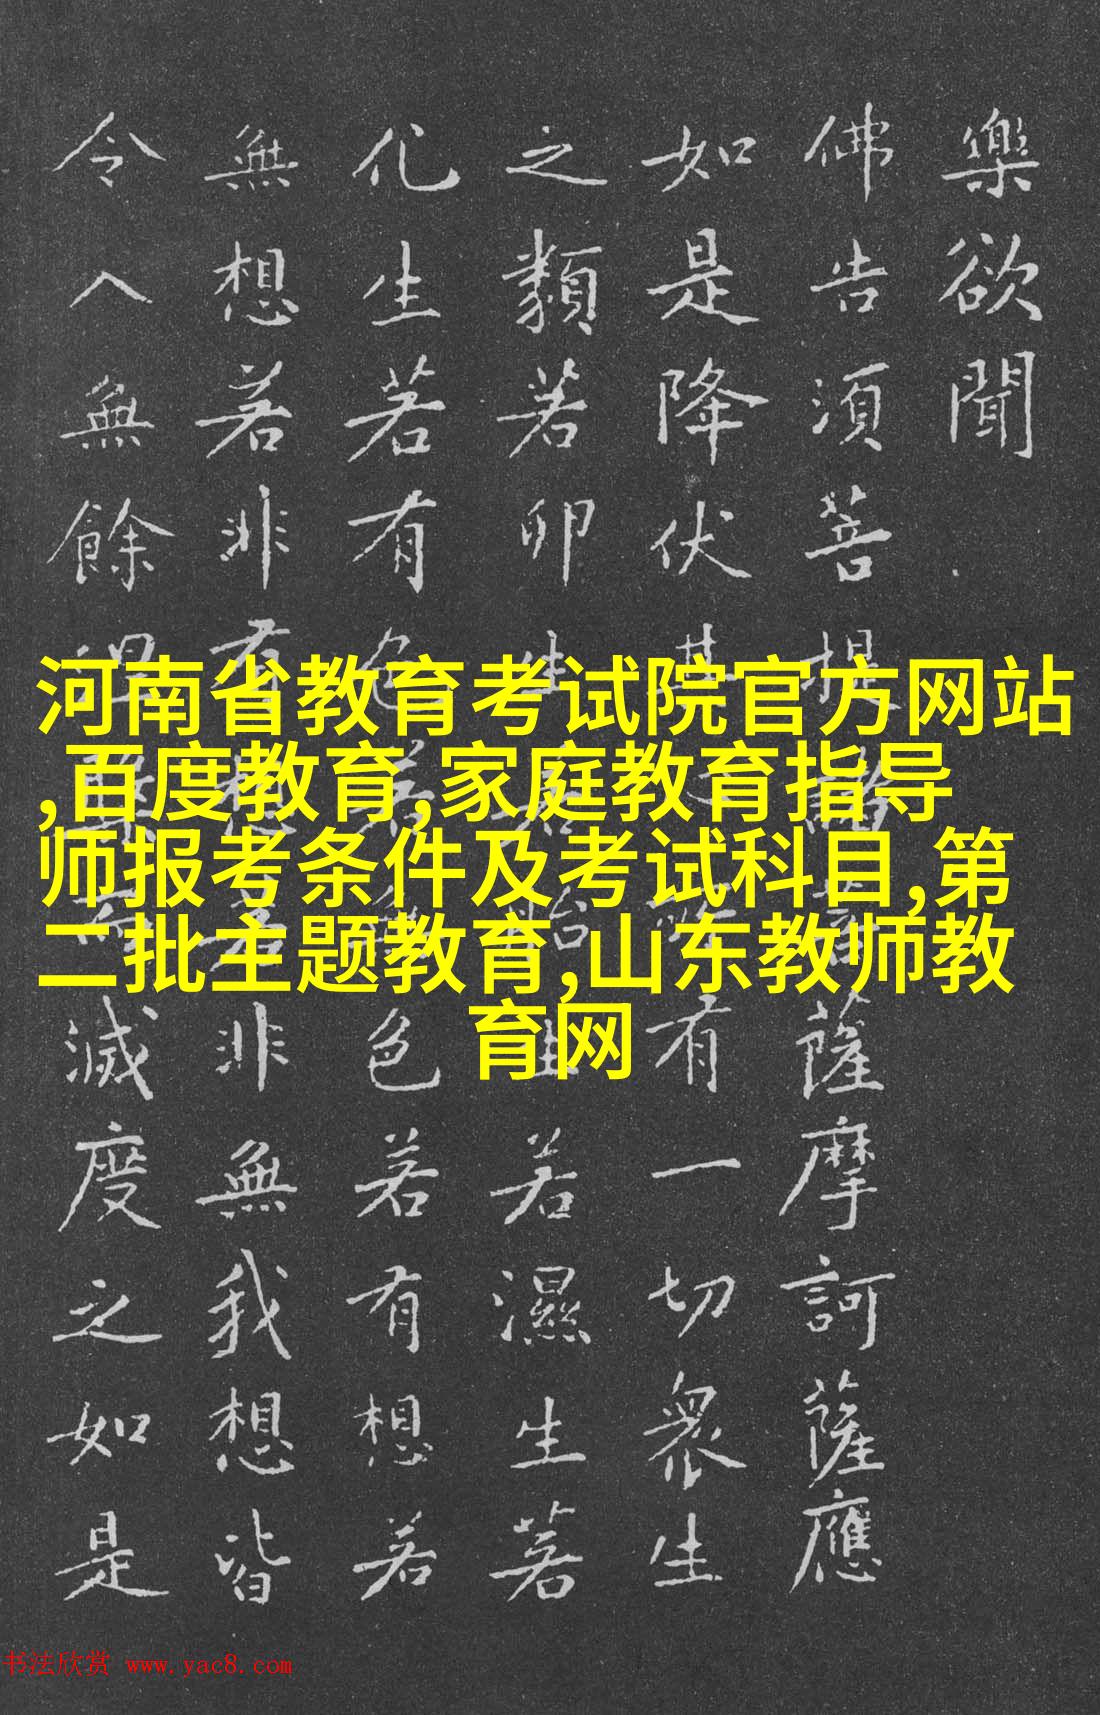 樂欲聞
佛告須菩提諸菩薩摩訶薩應
如是降伏其心所有一切眾生
之類若卵生若胎生若濕生若
化生若有色若無色若有想若
無想若非有想若非無我想皆
令入無餘涅槃而滅度之如是
河南省教育考试院官方网站
,百度教育,家庭教育指导
师报考条件及考试科目,第
二批主题教育,山东教师教
育网
书法欣赏 www.yac8.com